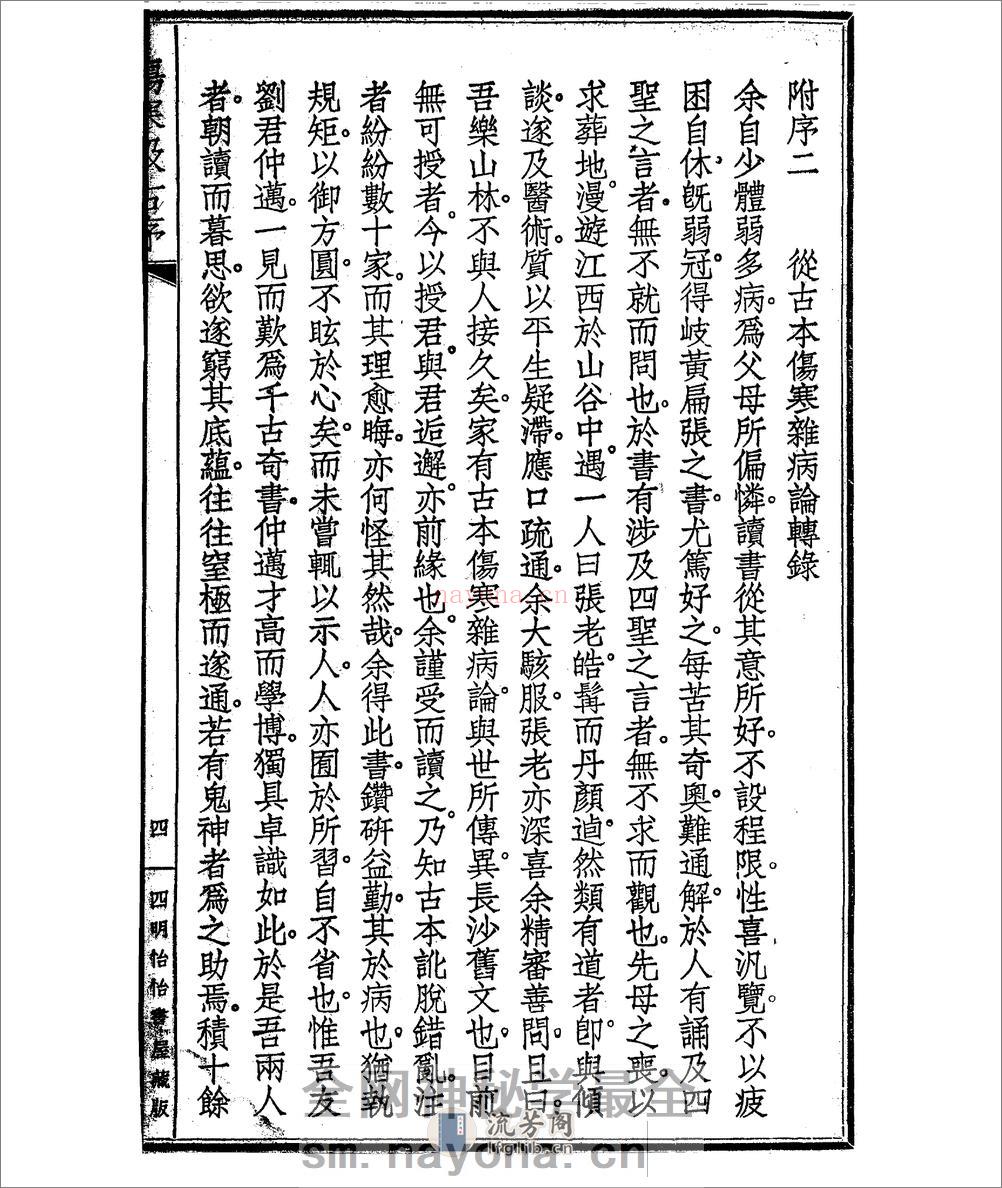 附序二　　從古本傷寒雜病論轉錄
余自少體弱多病。爲父母所偏憐。讀書從其意所好。不設程限。性喜汎覽。不以疲
困自休。旣弱冠。得岐黃扁張之書。尤篤好之。每苦其奇奧難通解。於人有誦及四
聖之言者。無不就而問也。於書有涉及四聖之言者。無不求而觀也。先母之喪。以
求葬地。漫遊江西於山谷中。遇一人曰張老。皓髯而丹顏。逌然類有道者。卽與傾
談。遂及醫術。質以平生疑滯。應口疏通。余大駭服。張老亦深喜余精審善問。且曰。
吾樂山林。不與人接久矣。家有古本傷寒雜病論。與世所傳異。長沙舊文也。目前
無可授者。今以授君。與君逅邂。亦前緣也。余謹受而讀之。乃知古本訛脫錯亂。注
者紛紛數十家。而其理愈晦。亦何怪其然哉。余得此書。鑽硏益勤。其於病也。猶執
規矩。以御方圓。不眩於心矣。而未嘗輒以示人。人亦囿於所習。自不省也。惟吾友
劉君仲邁。一見而歎爲千古奇書。仲邁才高而學博。獨具卓識如此。於是吾兩人
者。朝讀而暮思。欲遂窮其底蘊。往往窒極而遂通。若有鬼神者爲之助焉。積十餘
四
四明怡怡書屋藏版
nayona.cn
全网神秘学最全
流芳阁
lfglib.cn
sm.nayona.cn